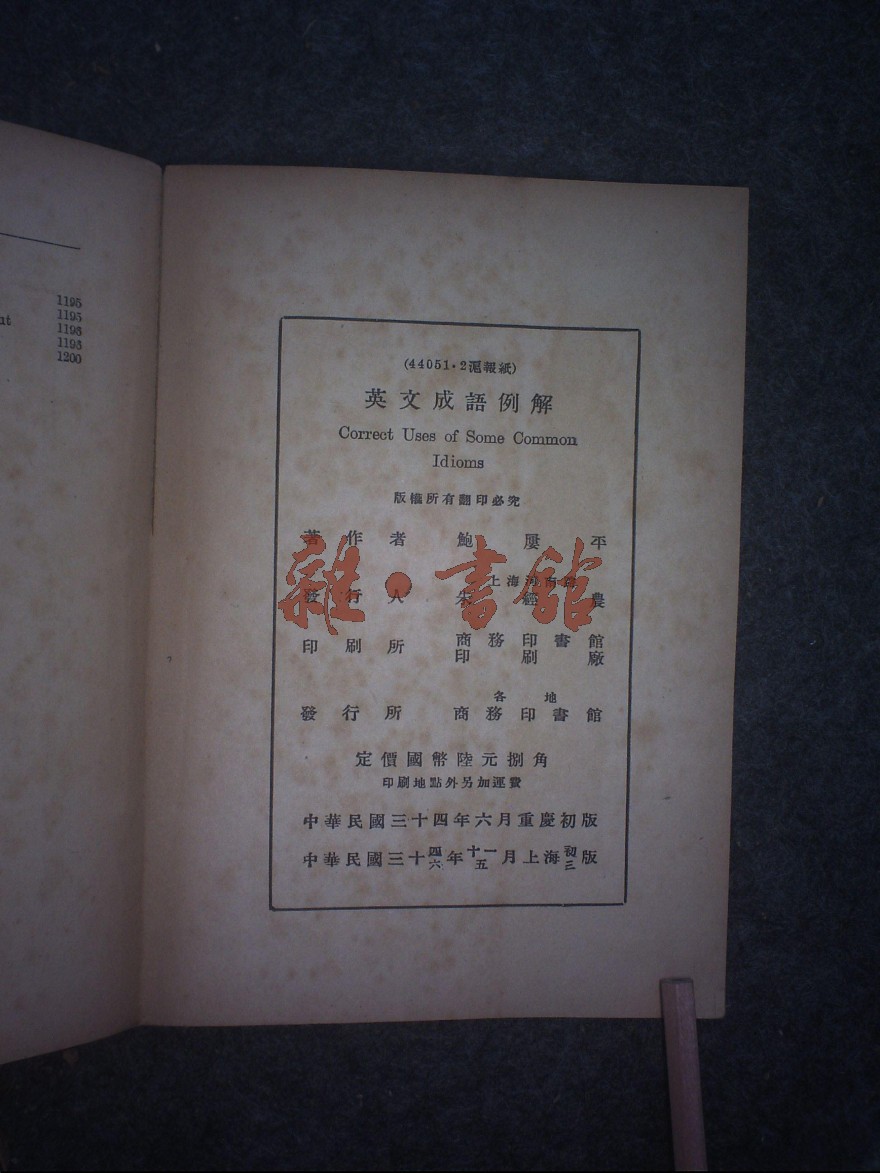 1195
ut 1195
1196
1198
1200
(44051·2滬報紙)
英文成語例解
Correct Uses of Some Common
Idioms
版權所有翻印必究
著作者 鮑屢平
上海河南路
發行人 朱經農
印刷所 商務印書館
印刷廠
各地
發行所 商務印書館
定價國幣陸元捌角
印刷地點外另加運費
中華民國三十四年六月重慶初版
中華民國三十四六年十一五月上海初三版
雜·書館